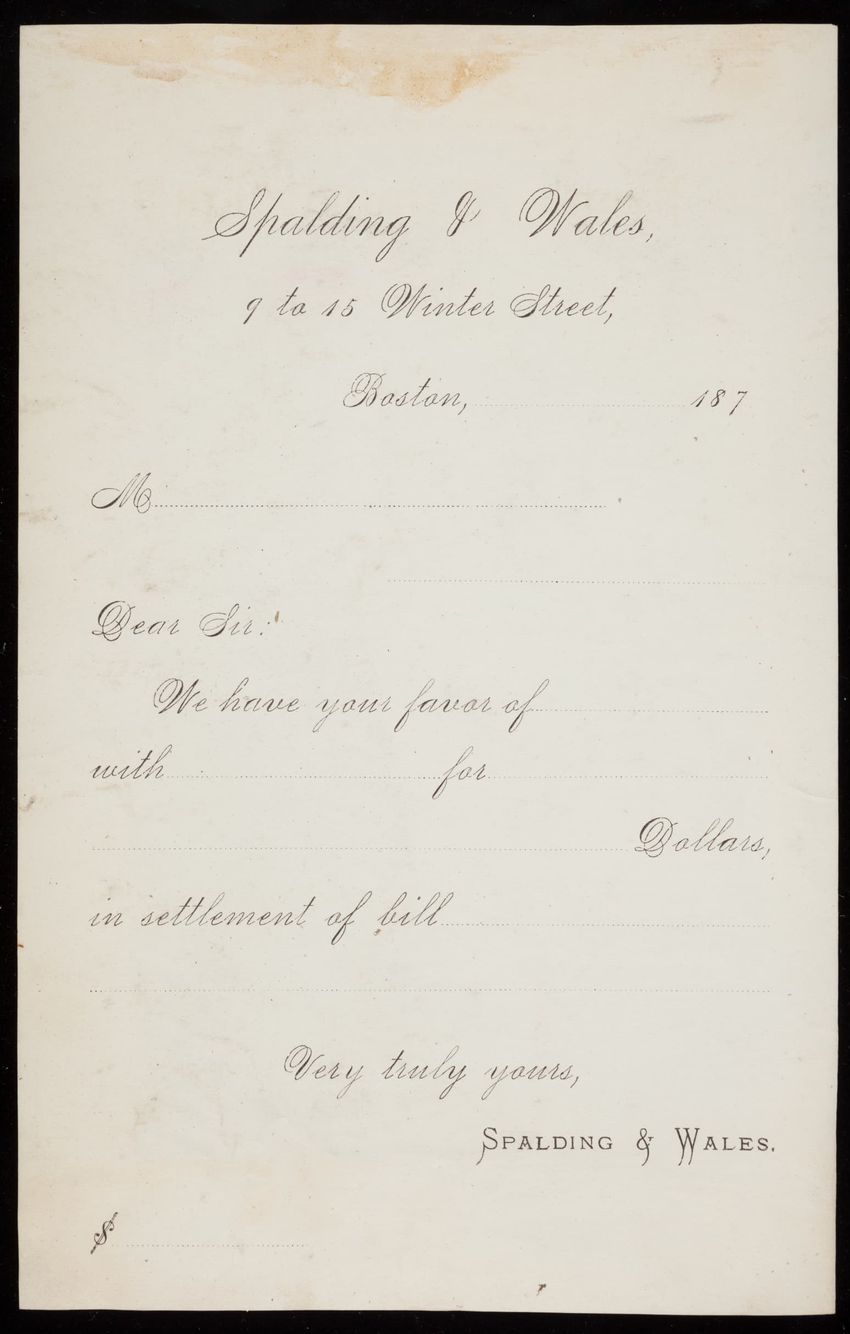 Spalding & Wales,
9 to 15 Winter Street,
Boston, 187
M
Dear Sir:
We have your favor of
with for
Dollars,
in settlement of bill
Very truly yours,
SPALDING & WALES.
$